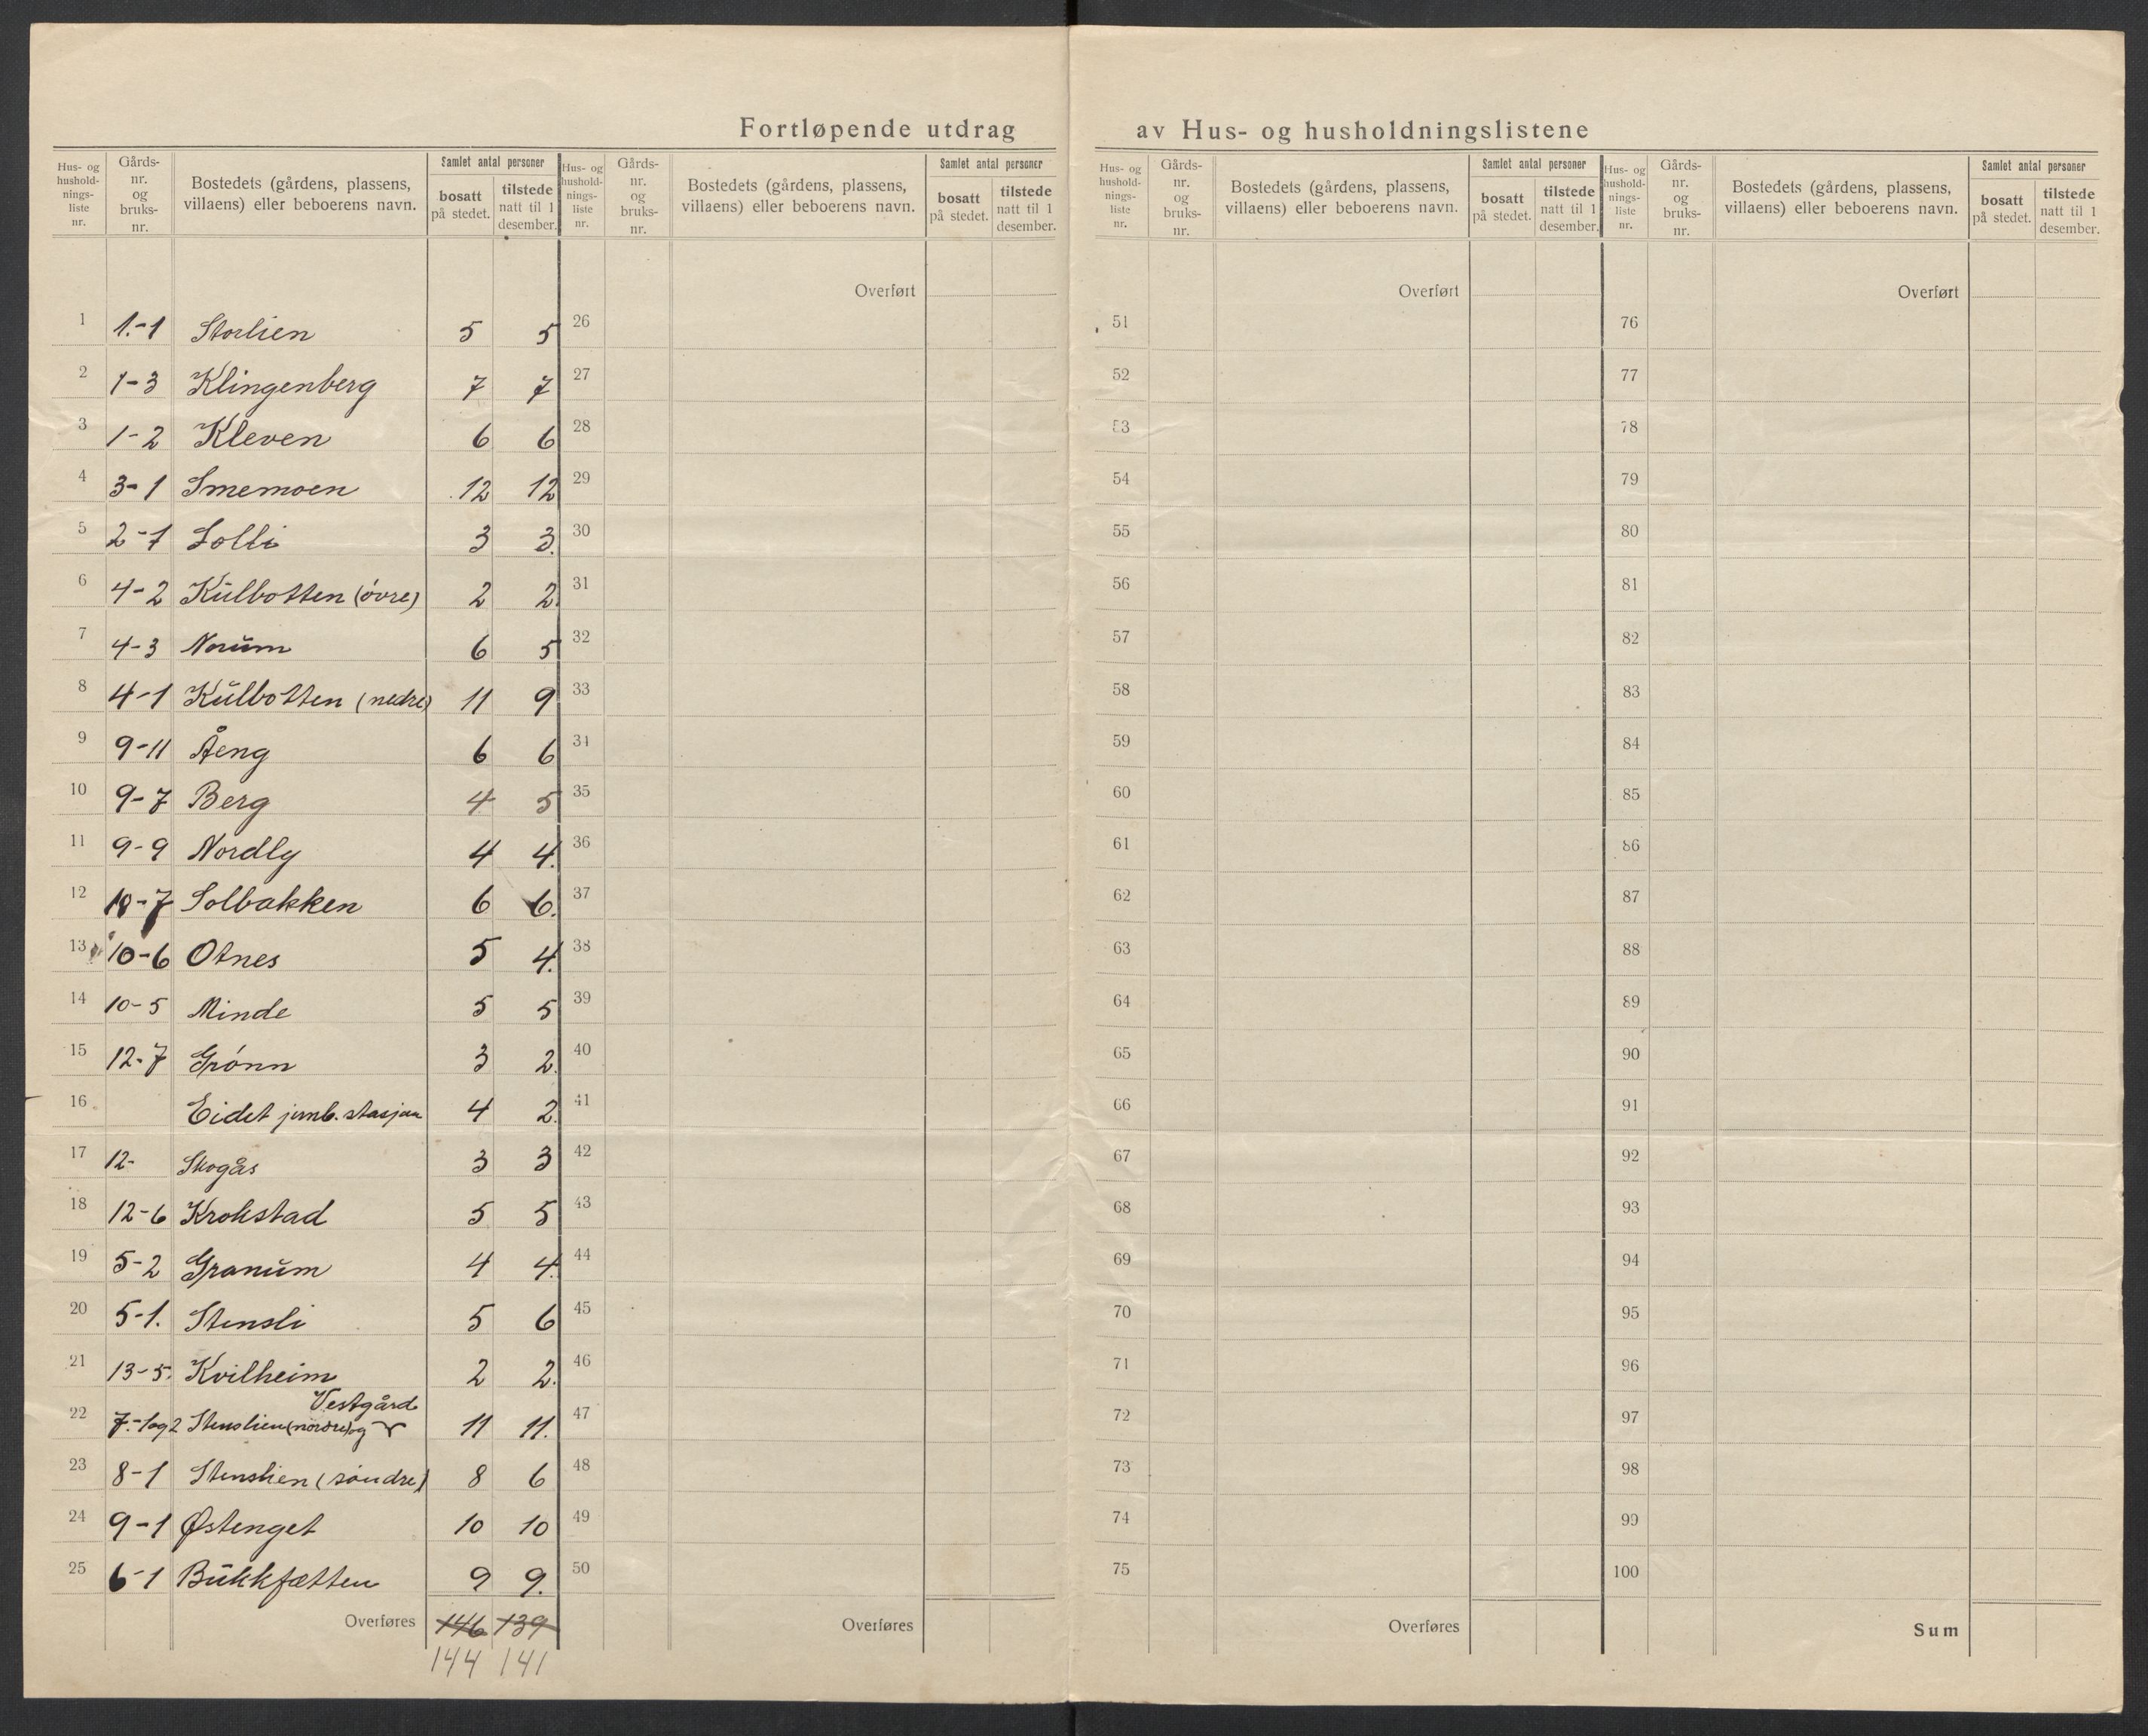 Fortløpende utdrag av Hus- og husholdningslistene
Hus- og hushold-nings-liste nr. | Gårds-nr. og bruks-nr. | Bostedets (gårdens, plassens, villaens) eller beboerens navn. | Samlet antal personer | bosatt på stedet. | tilstede natt til 1 desember.
Hus- og hushold-nings-liste nr. | Gårds-nr. og bruks-nr. | Bostedets (gårdens, plassens, villaens) eller beboerens navn. | Samlet antal personer | bosatt på stedet. | tilstede natt til 1 desember.
Hus- og hushold-nings-liste nr. | Gårds-nr. og bruks-nr. | Bostedets (gårdens, plassens, villaens) eller beboerens navn. | Samlet antal personer | bosatt på stedet. | tilstede natt til 1 desember.
Hus- og hushold-nings-liste nr. | Gårds-nr. og bruks-nr. | Bostedets (gårdens, plassens, villaens) eller beboerens navn. | Samlet antal personer | bosatt på stedet. | tilstede natt til 1 desember.
Overført Overført Overført
1 1.-1 Storlien 5 5 26 51 76
2 1-3 Klingenberg 7 7 27 52 77
3 1-2 Kleven 6 6 28 53 78
4 3-1 Smemoen 12 12 29 54 79
5 2-1 Solli 3 3. 30 55 80
6 4-2 Kūlbotten (óvre) 2 2. 31 56 81
7 4-3 Norūm 6 5 32 57 82
8 4-1 Kūlbotten (nedre) 11 9 33 58 83
9 9-11 Åeng 6 6 34 59 84
10 9-7 Berg 4 5 35 60 85
11 9-9 Nordly 4 4. 36 61 86
12 10-7 Solbakken 6 6. 37 62 87
13 10-6 Otnes 5 4. 38 63 88
14 10-5 Minde 5 5 39 64 89
15 12-7 Grónn 3 2. 40 65 90
16 Eidet jernb. stasjon 4 2. 41 66 91
17 12- Skogås 3 3 42 67 92
18 12-6 Krokstad 5 5 43 68 93
19 5-2 Granūm 4 4. 44 69 94
20 5-1. Stensli 5 6 45 70 95
21 13-5. Kvilheim 2 2. 46 71 96
Vestgård
22 7.-1og2 Stenslien (nordre) og 11 11. 47 72 97
23 8-1 Stenslien (sóndre) 8 6 48 73 98
24 9-1 Østenget 10 10 49 74 99
25 6-1 Būkkfætten 9 9. 50 75 100
Overføres 146 139 Overføres Overføres Sum
144 141